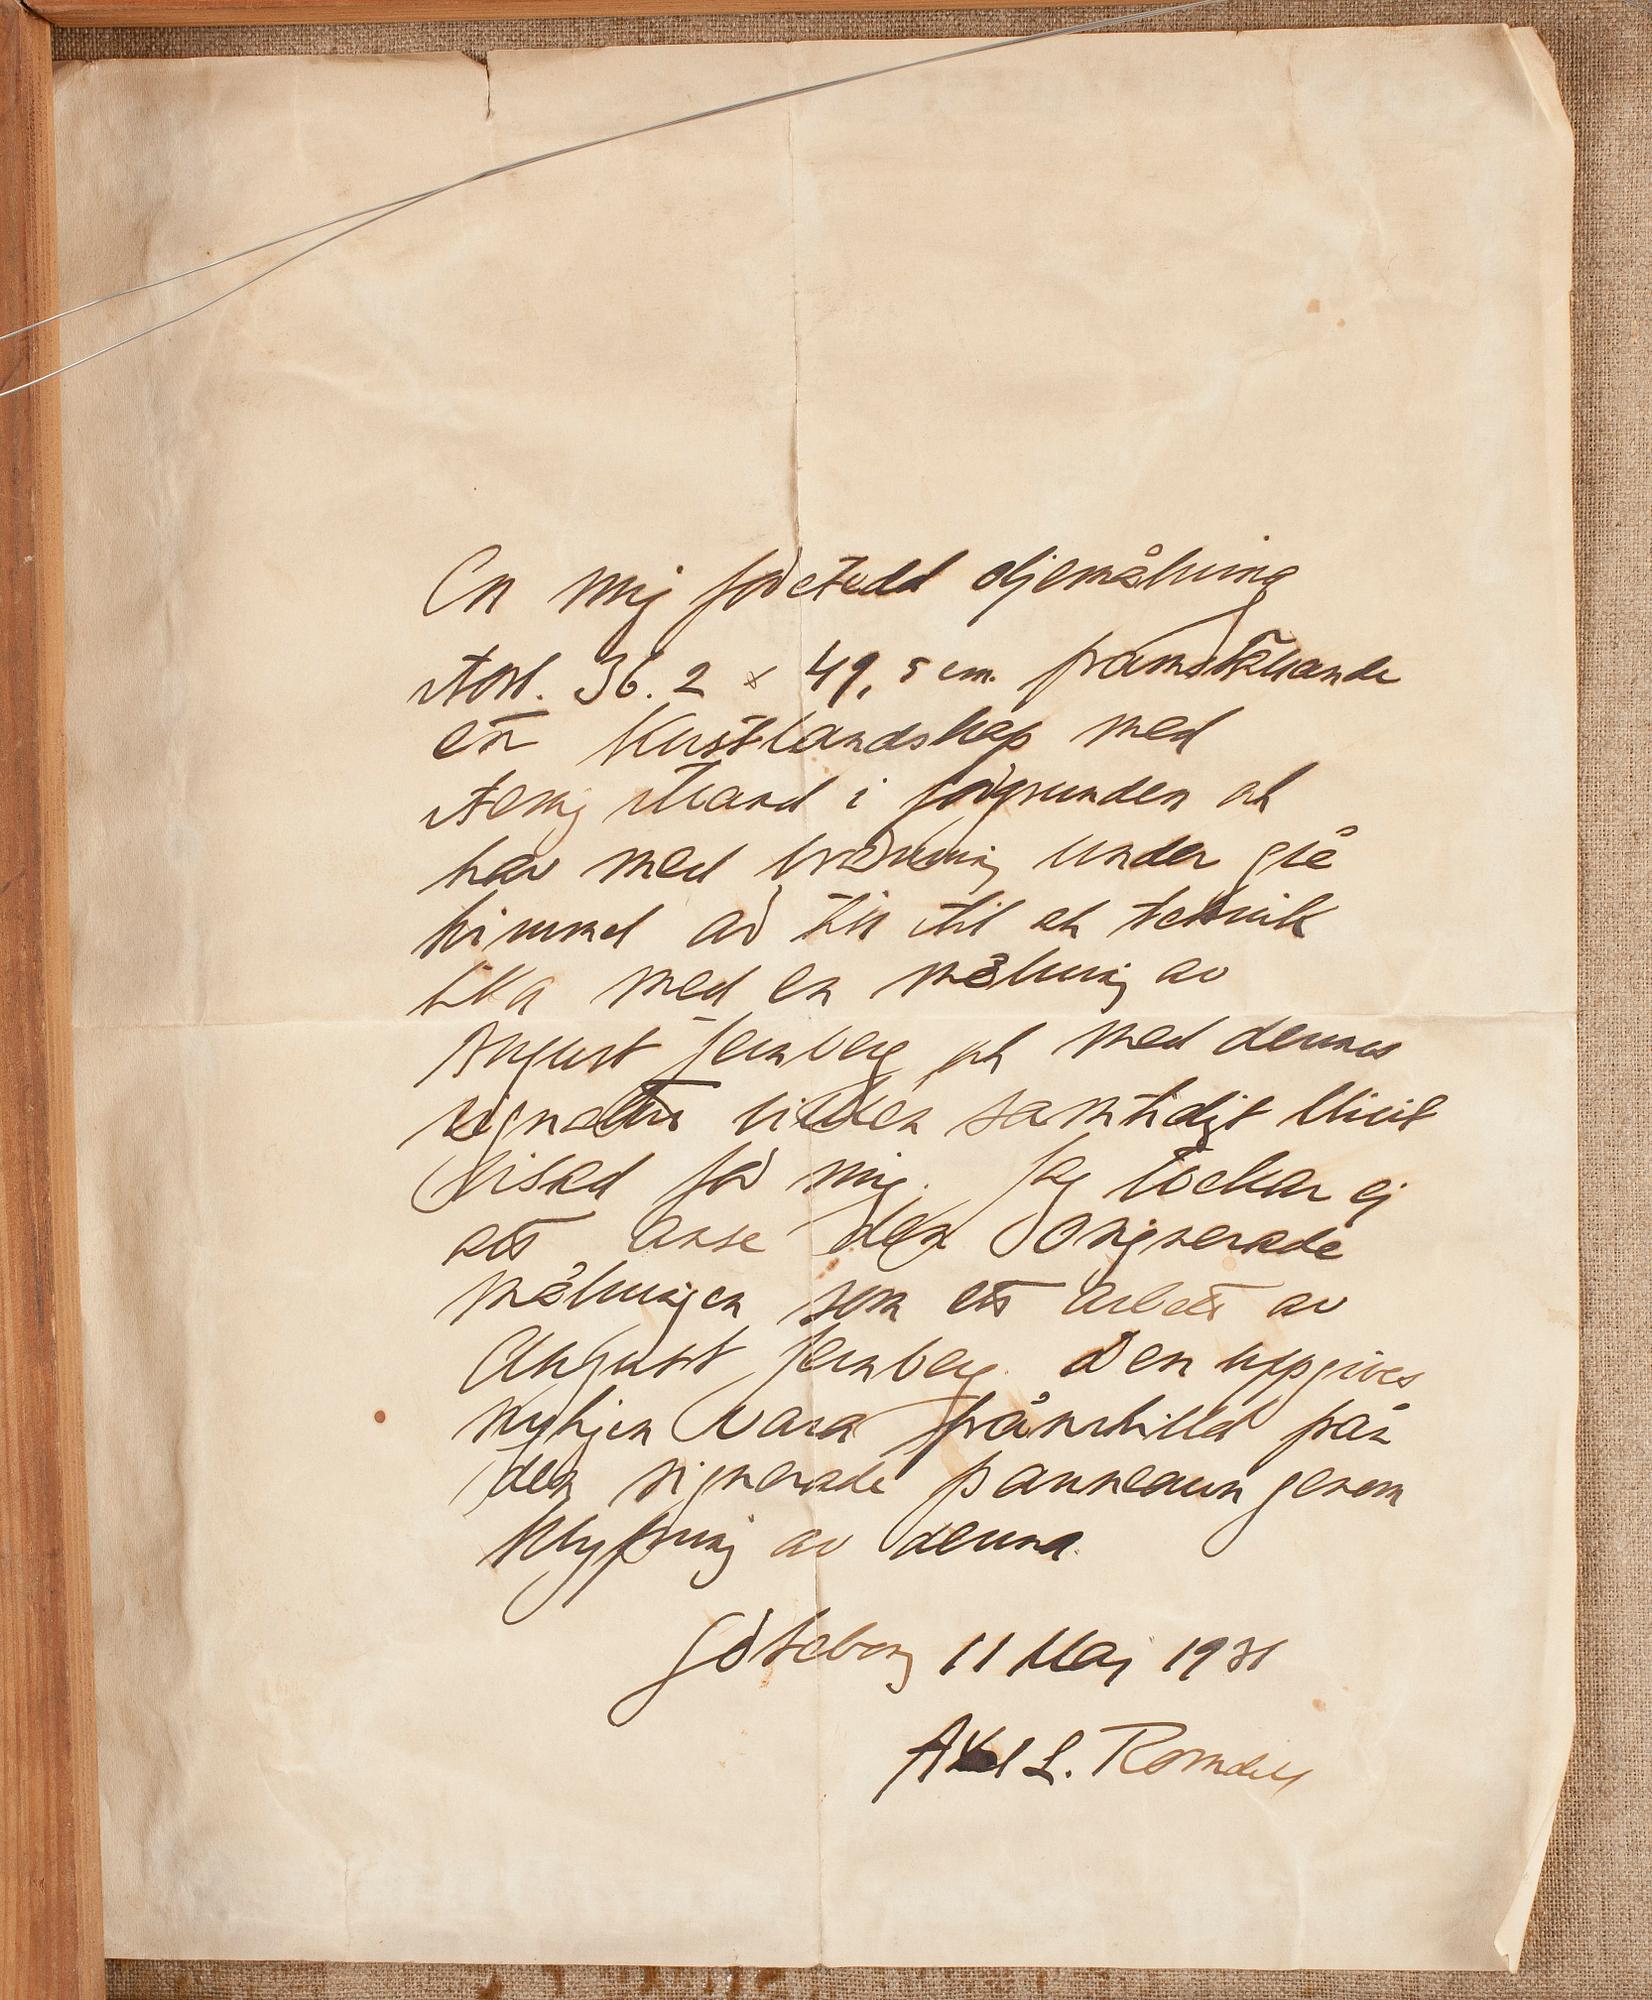 En mig företedd oljemålning
storl. 36.2 x 49,5 cm. framställande
ett Kustlandskap med
stenig strand i förgrunden och
hav med bränning under grå
himmel är till stil och teknik
lika med en målning av
August Jernberg och med dennes
signatur vilken samtidigt blivit
visad för mig. Jag tvekar ej
att anse den osignerade
målningen som ett arbete av
August Jernberg. Den uppgives
nyligen vara frånskilld från
den signerade panneaun genom
klyfning av denna.
Göteborg 11 Maj 1931
Axel L. Romdahl